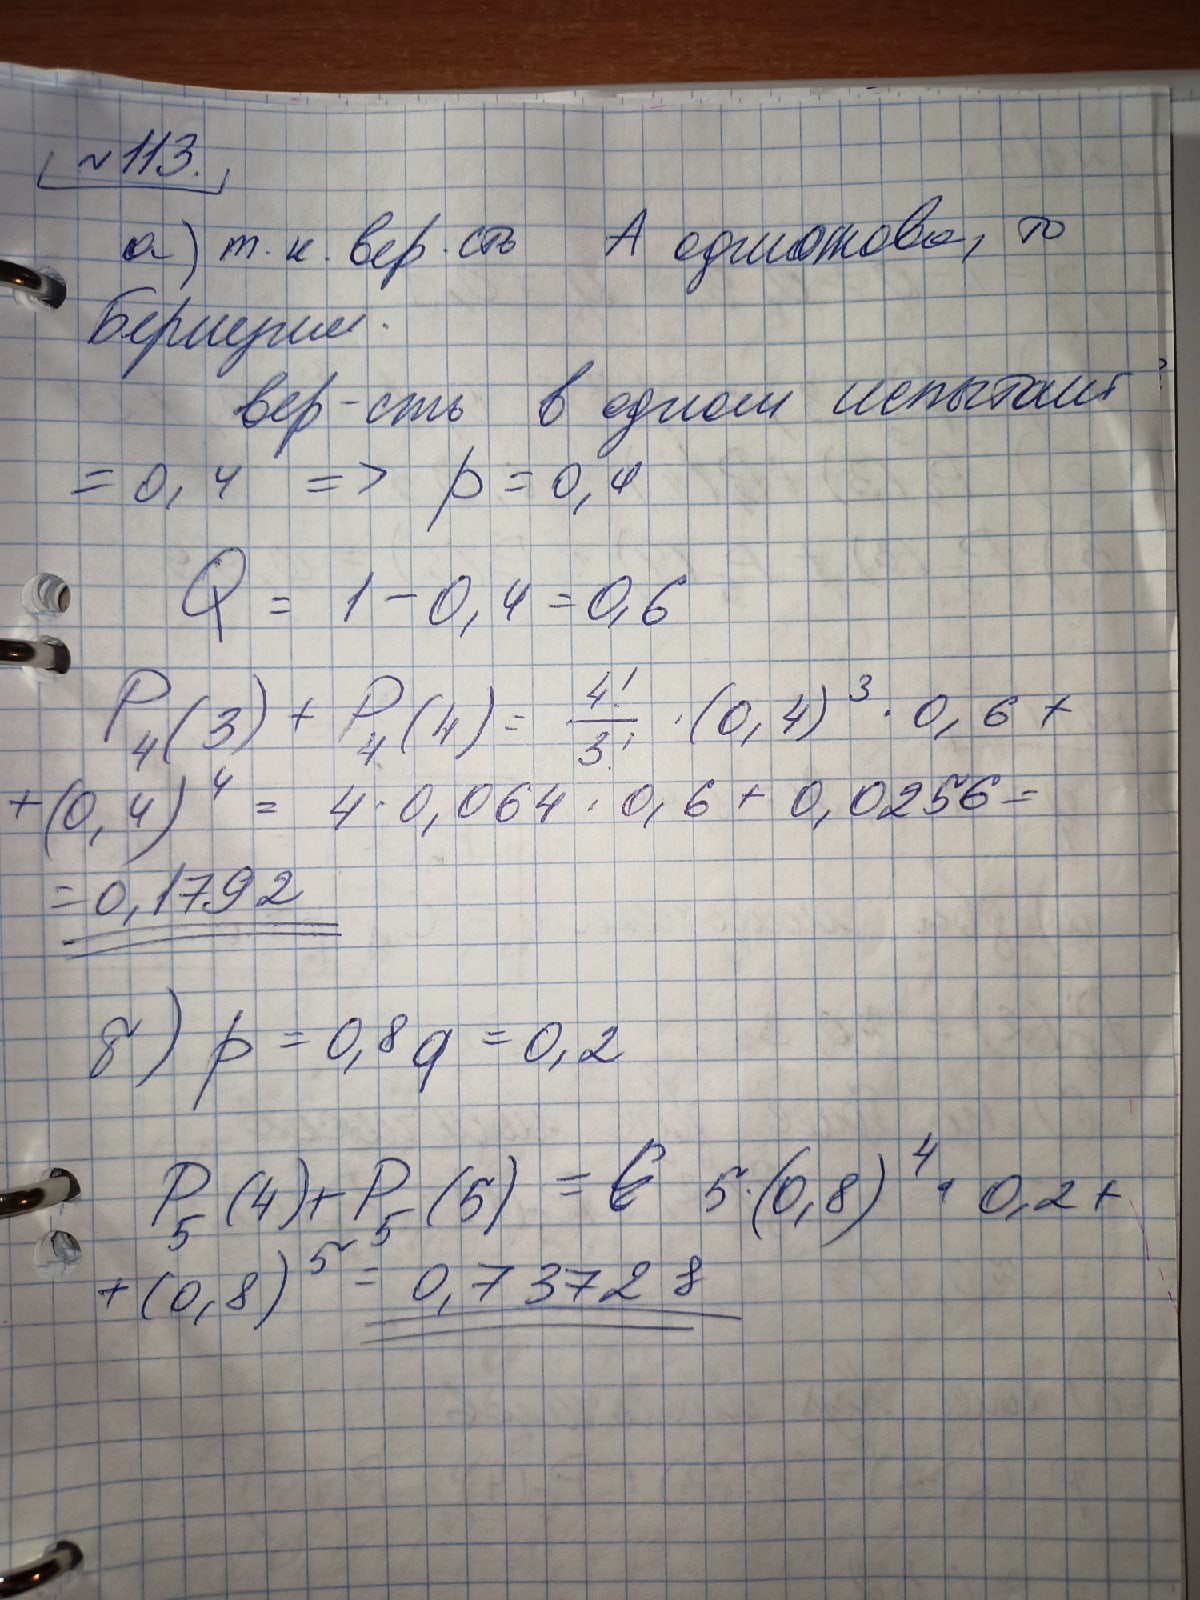 №113.
а) т.к. вер.сть А одинакова, то
Бернулли.
вер-сть в одном испытани
= 0,4 => p = 0,4
Q = 1 - 0,4 = 0,6
P₄(3) + P₄(4) = 4!/3! · (0,4)³ · 0,6 +
+ (0,4)⁴ = 4 · 0,064 · 0,6 + 0,0256 =
= 0,1792
б) p = 0,8 q = 0,2
P₅(4) + P₅(5) = 5·(0,8)⁴ · 0,2 +
+ (0,8)⁵ = 0,73728